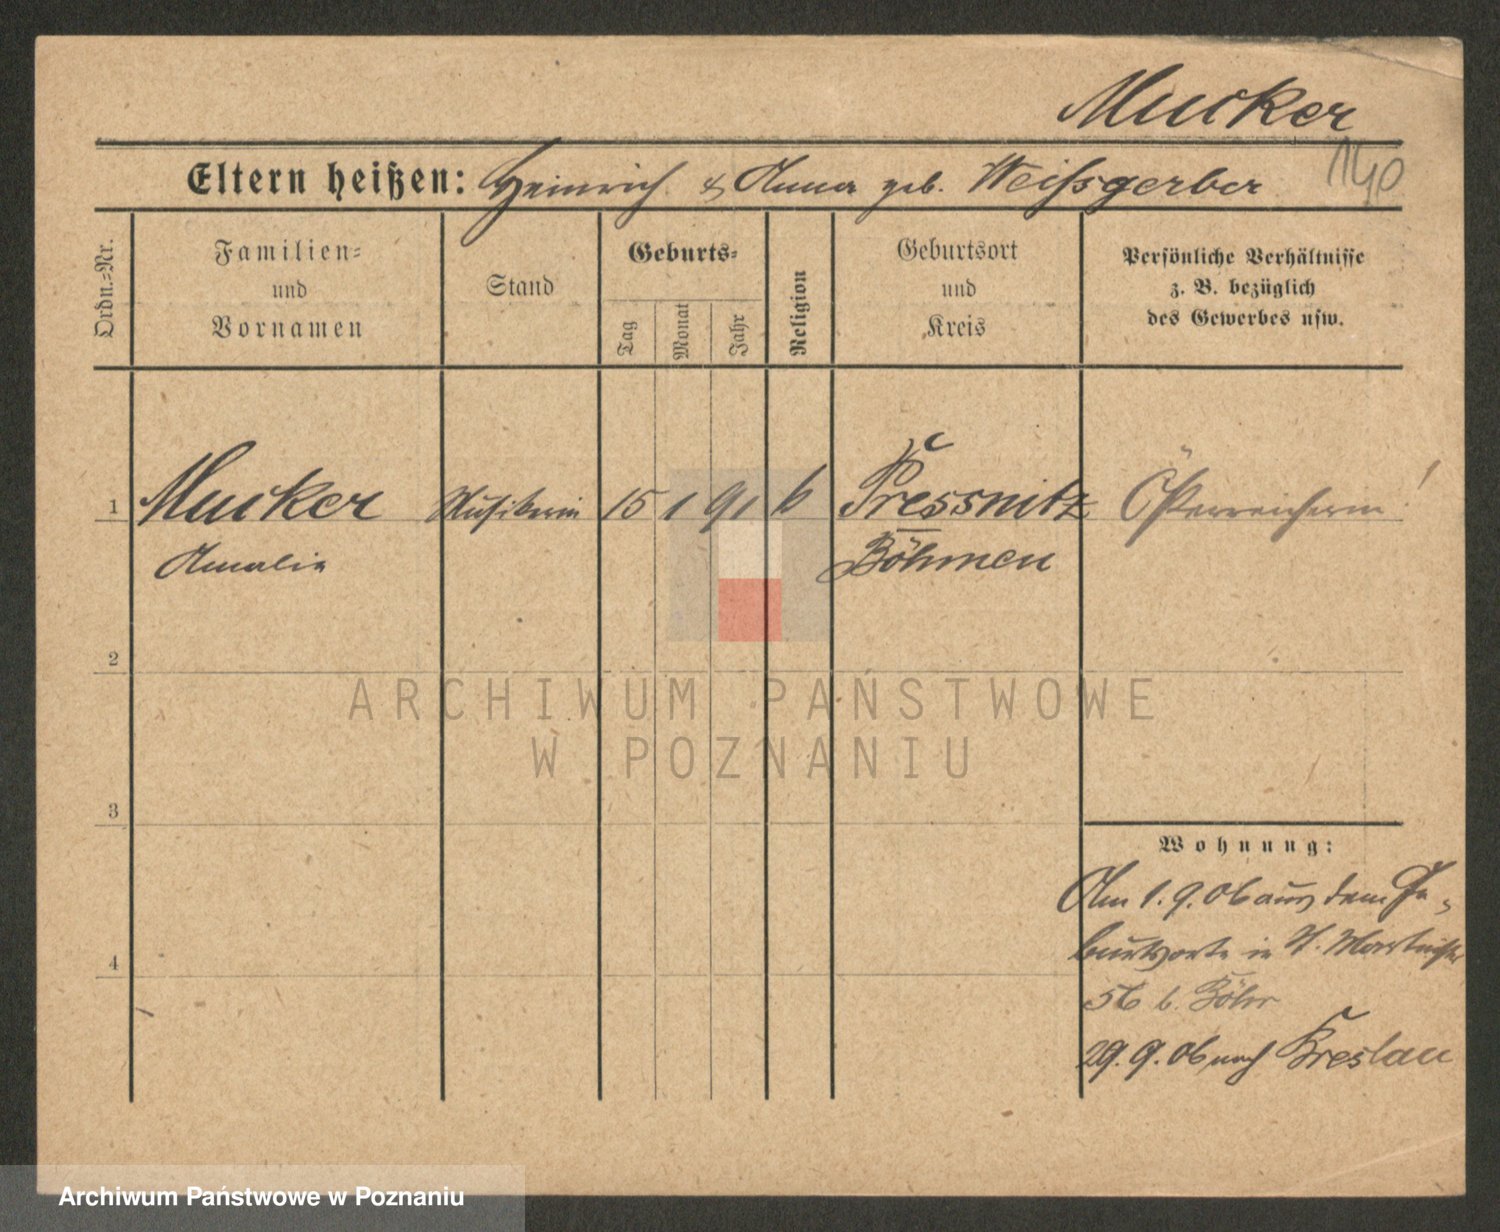 Mucker
140
Eltern heißen: Heinrich & Anna geb. Weißgerber
Ordn.-Nr.
Familien-
und
Vornamen
Stand
Geburts-
Tag
Monat
Jahr
Religion
Geburtsort
und
Kreis
Persönliche Verhältnisse
z. B. bezüglich
des Gewerbes usw.
1 Mucker Musikerin 15 1 91 k Pressnitz Österreicherin!
Amalie Böhmen
2
ARCHIWUM PAŃSTWOWE
W POZNANIU
3
Wohnung:
Am 1.9.06 aus dem Ge-
burtsorte in St. Martinstr
56 b.
4
29.9.06 nach Breslau
Archiwum Państwowe w Poznaniu